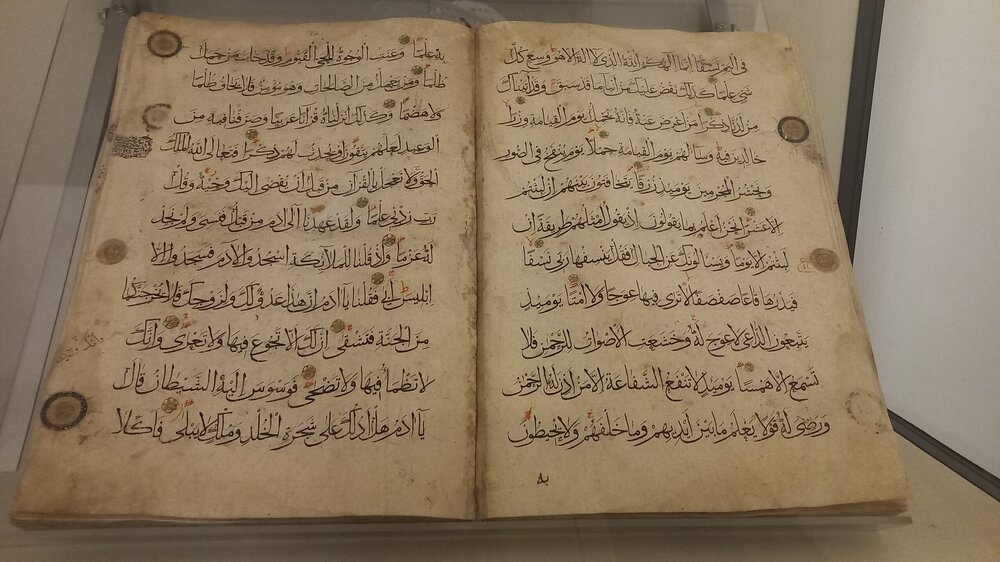 في اليم نسفا انما الهكم الله الذي لا اله الا هو وسع كل
شي علما كذلك نقص عليك من انبا ما قد سبق وقد اتيناك
من لدنا ذكرا من اعرض عنه فانه يحمل يوم القيامة وزرا
خالدين فيه وسا لهم يوم القيامة حملا يوم ينفخ في الصور
ونحشر المجرمين يوميذ زرقا يتخافتون بينهم ان لبثتم
الا عشرا نحن اعلم بما يقولون اذ يقول امثلهم طريقة ان
لبثتم الا يوما ويسالونك عن الجبال فقل ينسفها ربي نسفا
فيذرها قاعا صفصفا لا ترى فيها عوجا ولا امتا يوميذ
يتبعون الداعي لا عوج له وخشعت الاصوات للرحمن فلا
تسمع الا همسا يوميذ لا تنفع الشفاعة الا من اذن له الرحمن
ورضي له قولا يعلم ما بين ايديهم وما خلفهم ولا يحيطون
به
به علما وعنت الوجوه للحي القيوم وقد خاب من حمل
ظلما ومن يعمل من الصالحات وهو مومن فلا يخاف ظلما
ولا هضما وكذلك انزلناه قرانا عربيا وصرفنا فيه من
الوعيد لعلهم يتقون او يحدث لهم ذكرا فتعالى الله الملك
الحق ولا تعجل بالقران من قبل ان يقضى اليك وحيه وقل
رب زدني علما ولقد عهدنا الى ادم من قبل فنسي ولم نجد
له عزما واذ قلنا للملايكة اسجدوا لادم فسجدوا الا
ابليس ابى فقلنا يا ادم ان هذا عدو لك ولزوجك فلا يخرجنكما
من الجنة فتشقى ان لك الا تجوع فيها ولا تعرى وانك
لا تظما فيها ولا تضحى فوسوس اليه الشيطان قال
يا ادم هل ادلك على شجرة الخلد وملك لا يبلى فاكلا